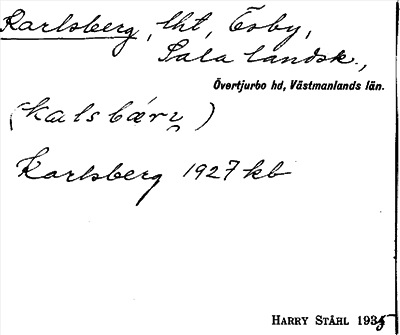 Karlsberg, lht, Esby,
Sala landsk.,
Övertjurbo hd, Västmanlands län.
(kalsbærɪ̯)
Karlsberg 1927 kb
HARRY STÅHL 1935